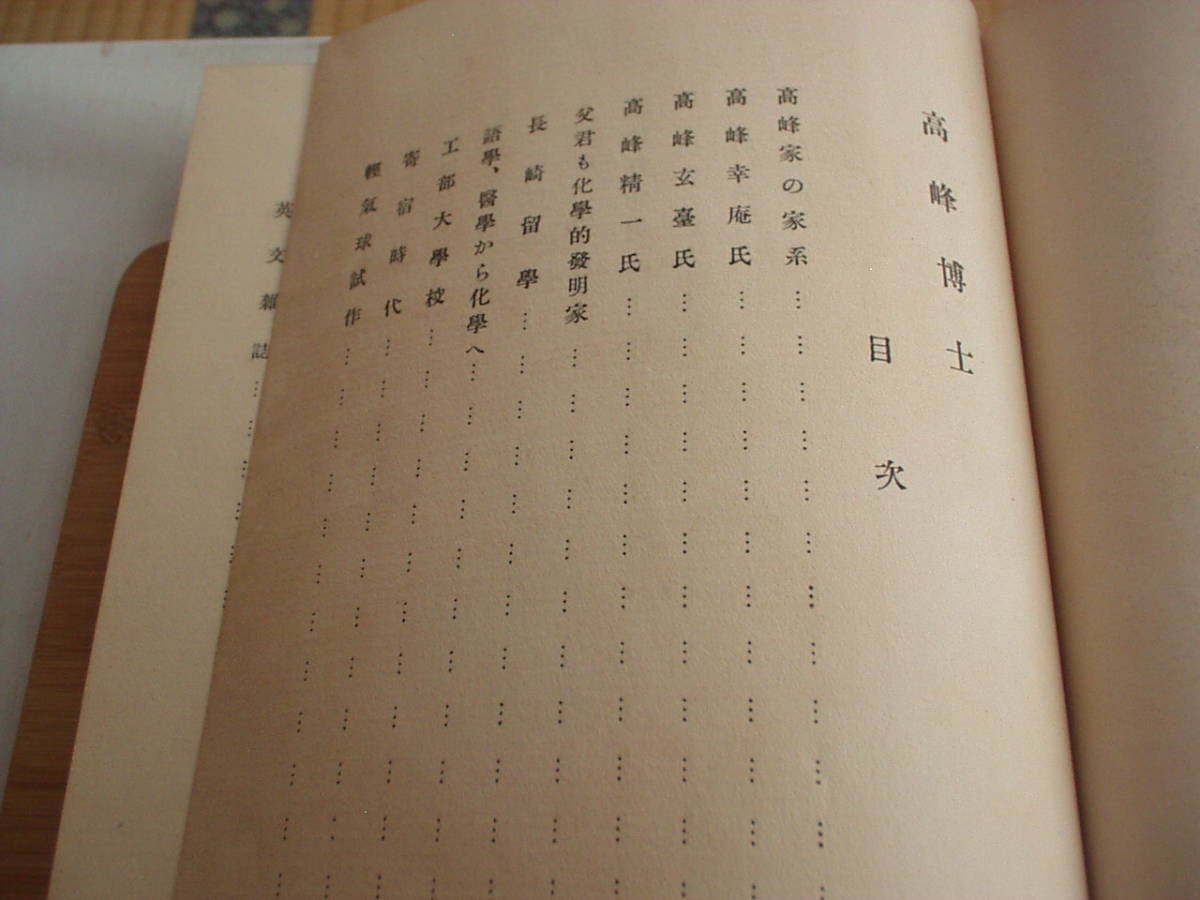 高峰博士
目次
高峰家の家系………………………………………
高峰幸庵氏………………………………………
高峰玄臺氏………………………………………
高峰精一氏………………………………………
父君も化學的發明家………………………………………
長崎留學………………………………………
語學、醫學から化學へ………………………………………
工部大學校………………………………………
寄宿時代………………………………………
輕氣球試作………………………………………
英文雜誌……………